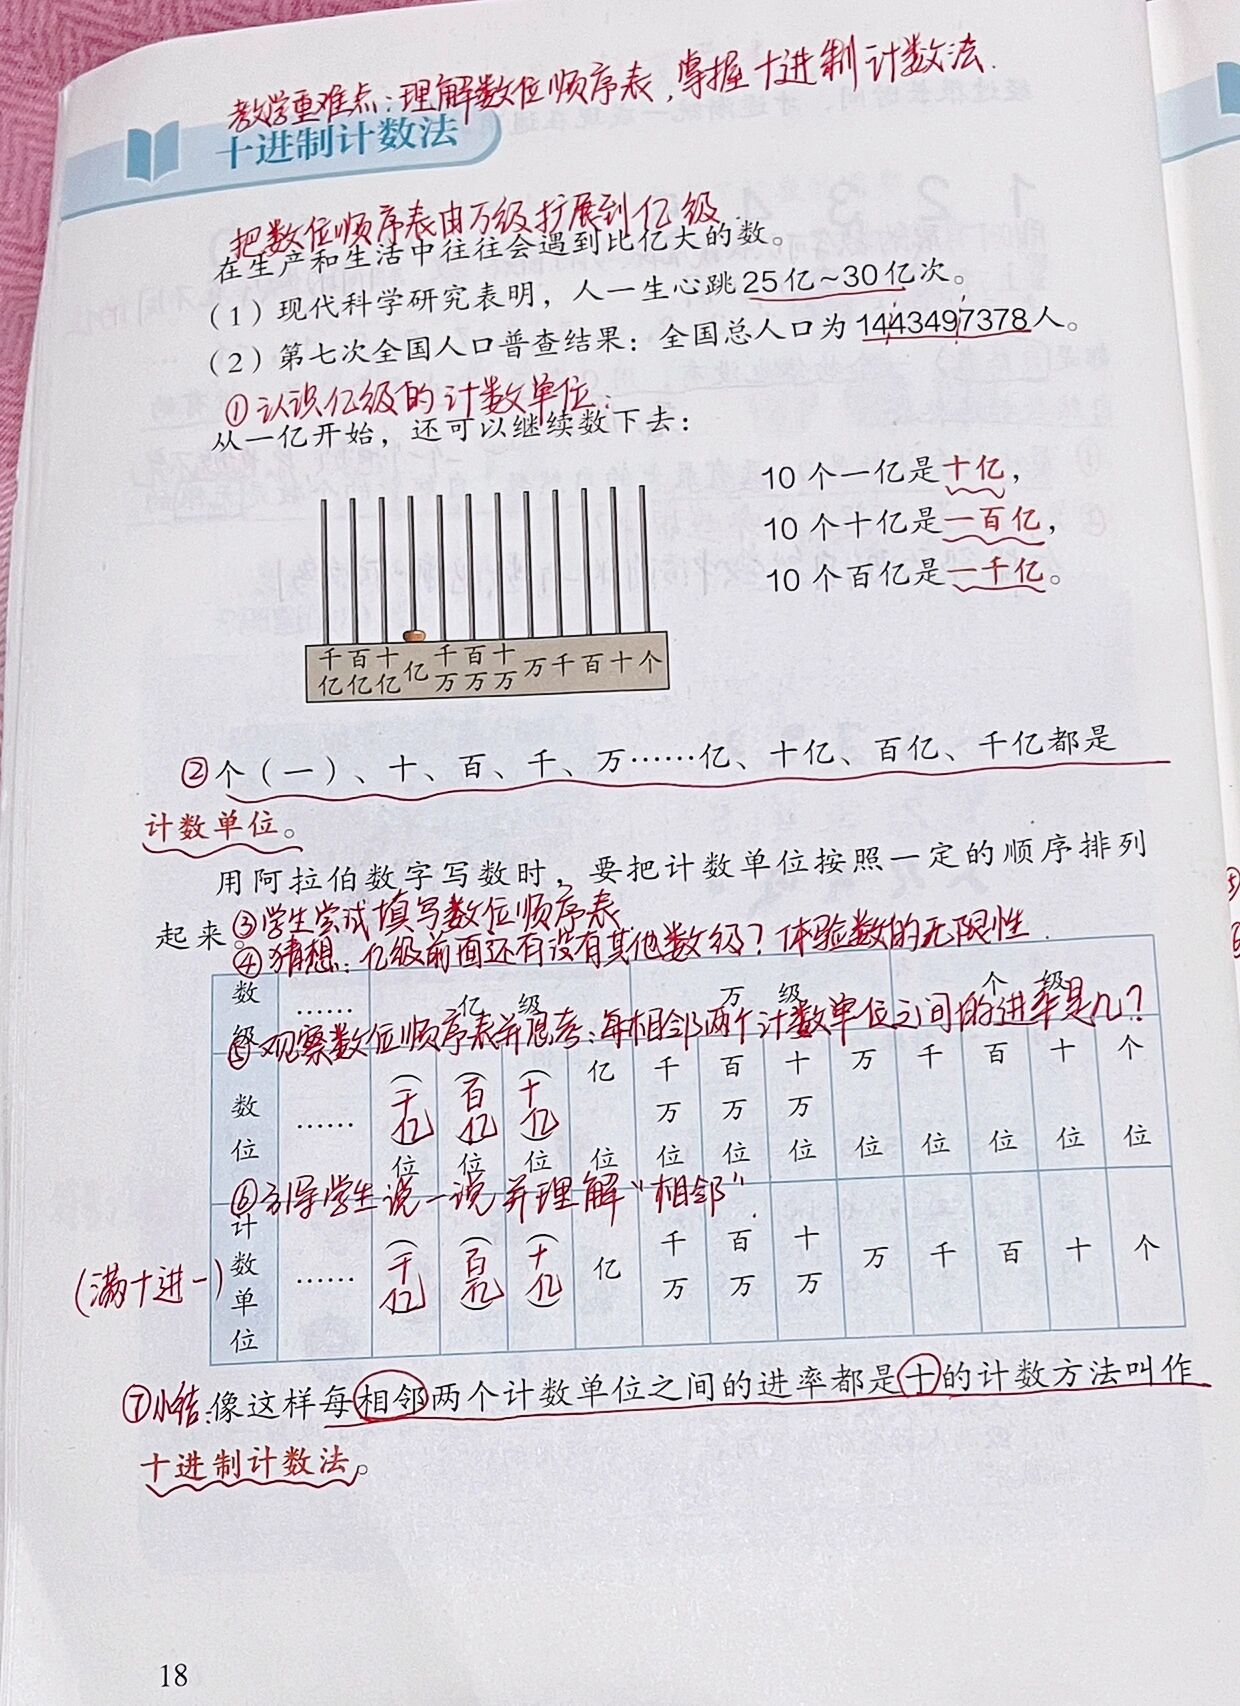 教学重难点:理解数位顺序表,掌握十进制计数法.
十进制计数法
把数位顺序表由万级扩展到亿级.
在生产和生活中往往会遇到比亿大的数。
(1)现代科学研究表明，人一生心跳25亿~30亿次。
(2)第七次全国人口普查结果：全国总人口为1443497378人。
①认识亿级的计数单位:
从一亿开始，还可以继续数下去：
10个一亿是十亿，
10个十亿是一百亿，
10个百亿是一千亿。
千亿 百亿 十亿 亿 千万 百万 十万 万 千 百 十 个
②个(一)、十、百、千、万……亿、十亿、百亿、千亿都是
计数单位。
用阿拉伯数字写数时，要把计数单位按照一定的顺序排列
起来。
③学生尝试填写数位顺序表
④猜想:亿级前面还有没有其他数级?体验数的无限性.
数级 …… 亿级 万级 个级
⑤观察数位顺序表并思考:每相邻两个计数单位之间的进率是几?
数位 …… (千亿)位 (百亿)位 (十亿)位 亿位 千万位 百万位 十万位 万位 千位 百位 十位 个位
⑥引导学生说一说并理解“相邻”.
计数单位 …… (千亿) (百亿) (十亿) 亿 千万 百万 十万 万 千 百 十 个
(满十进一)
⑦小结:像这样每相邻两个计数单位之间的进率都是十的计数方法叫作
十进制计数法。
18